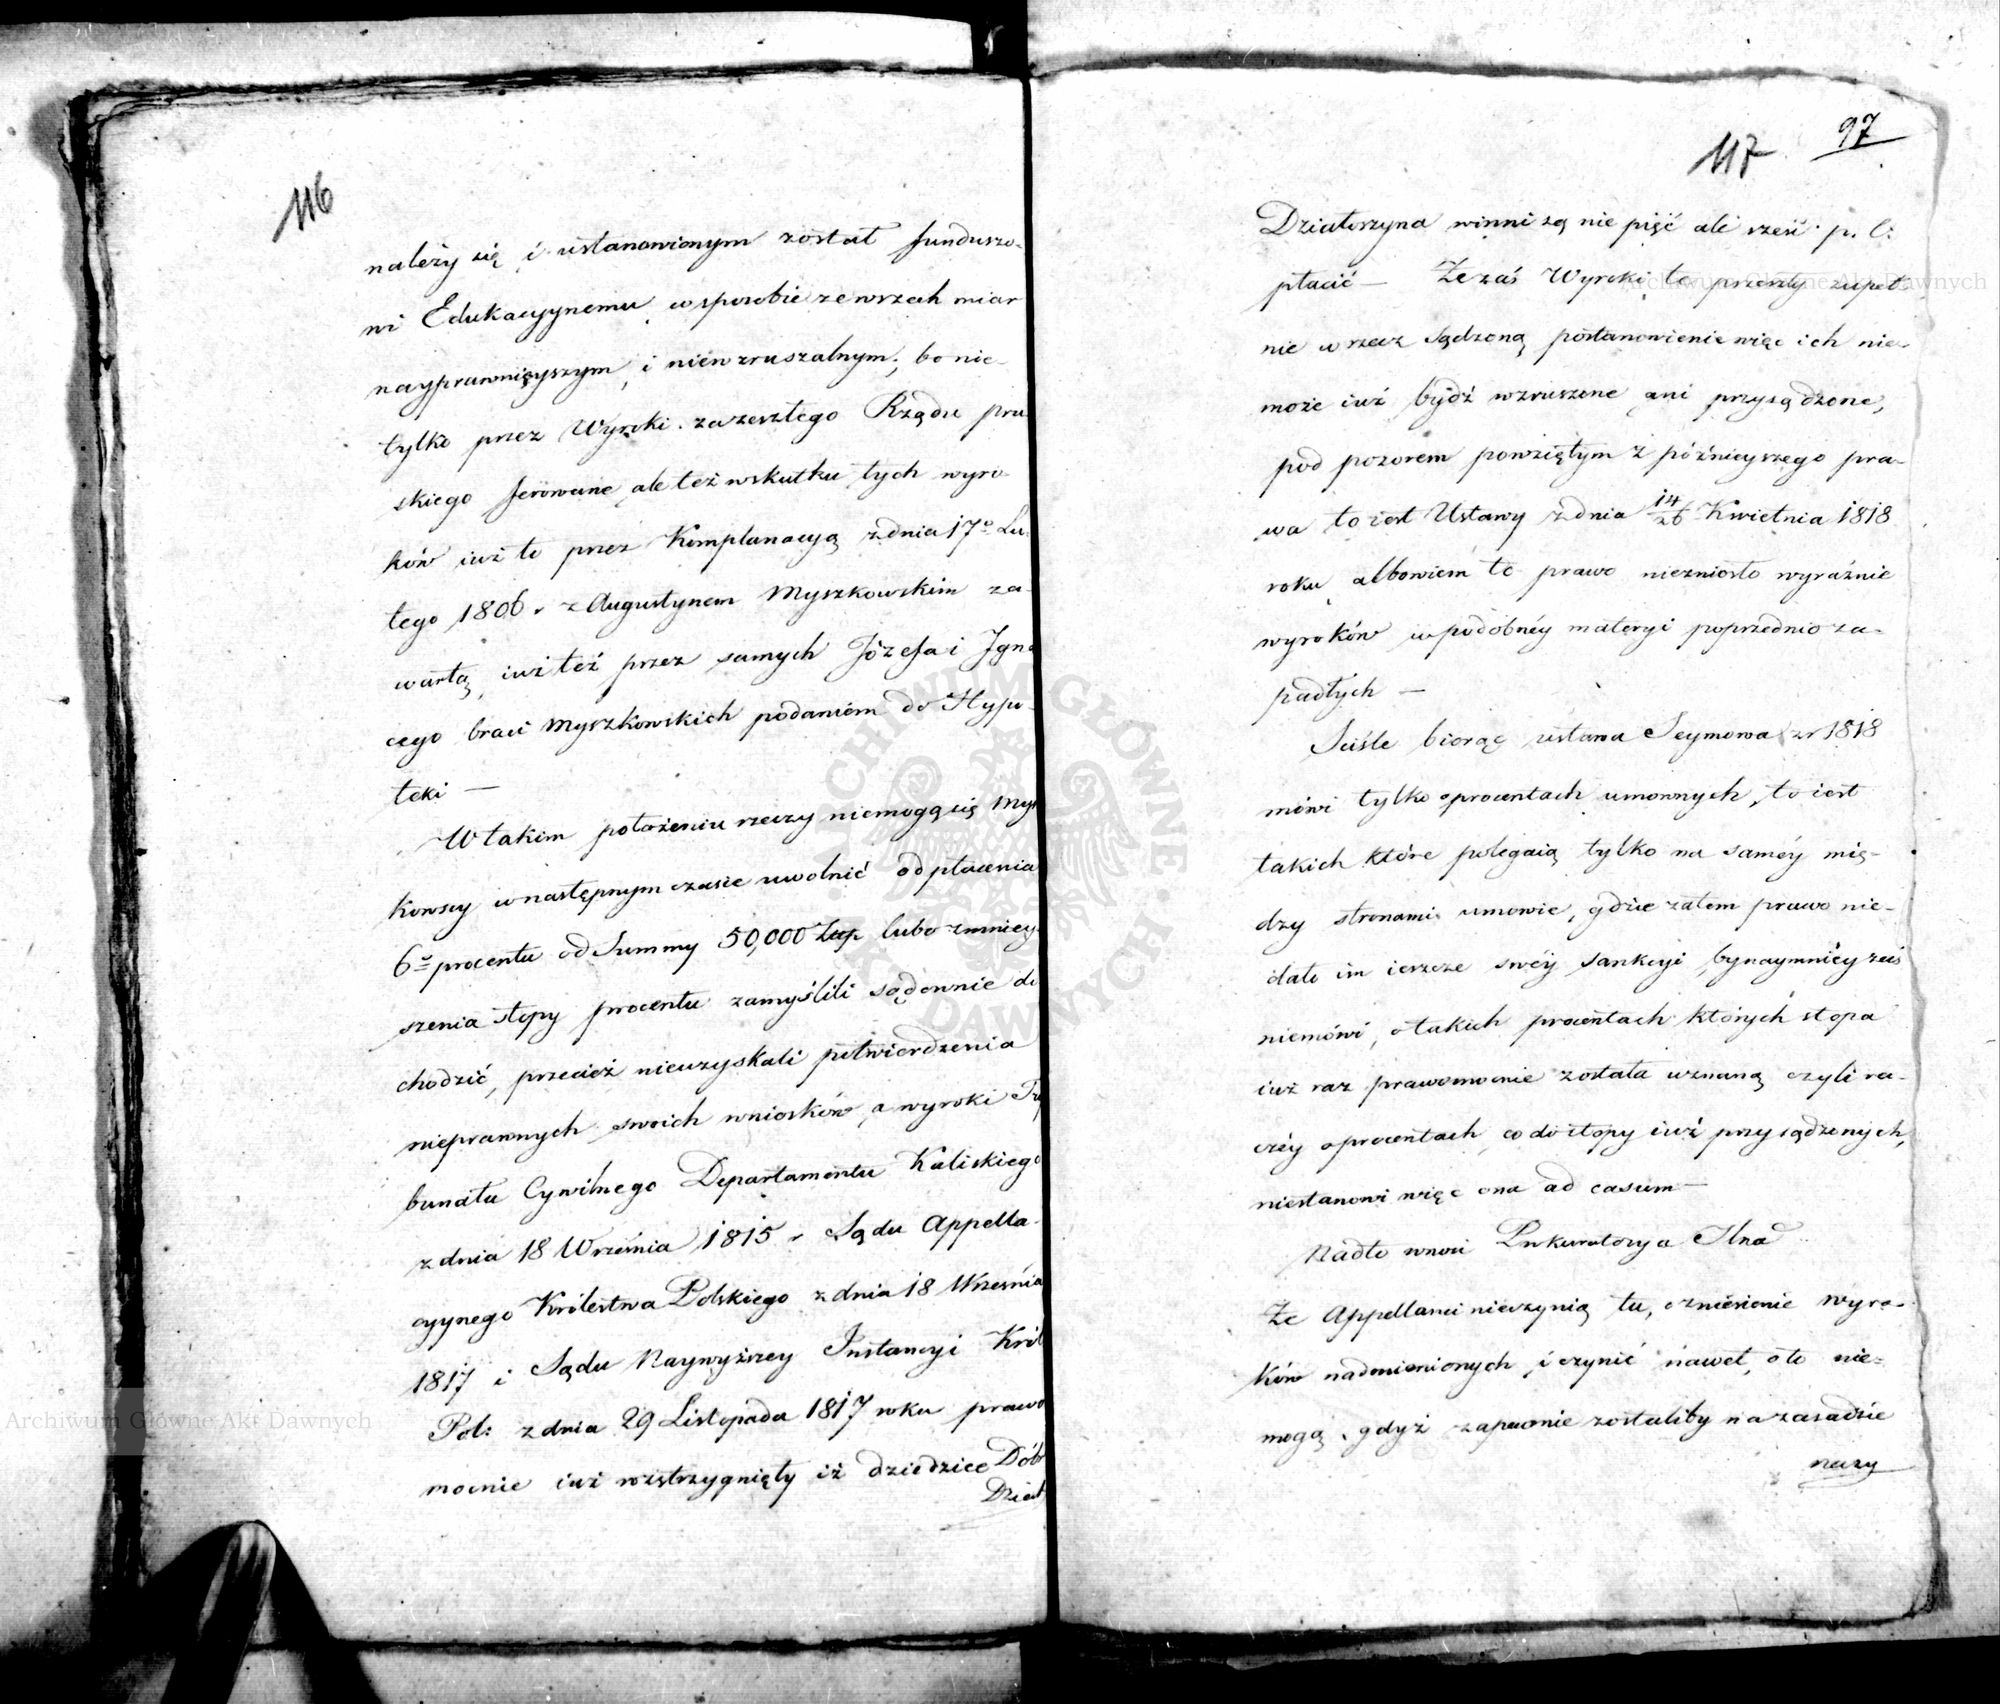 116
należy się i ustanowionym został funduszo-
wi Edukacyynemu w sposobie ze wszech miar
nayprawnieyszym, i niewzruszalnym, bo nie-
tylko przez Wyroki zazeszłego Rządu pru
skiego ferowane ale też wskutku tych wyro
ków iuż to przez Komplanacyą z dnia 17º Lu-
tego 1806 r z Augustynem Myszkowskim za-
wartą, iuż też przez samych Józefa i Igna
cego braci Myszkowskich podaniem do Hypo-
teki —
W takim położeniu rzeczy niemogą się Mysz
kowscy w następnym czasie uwolnić od płacenia
6º procentu od Summy 50,000 Złp lubo zmniey-
szenia stopy procentu zamyślili sądownie do
chodzić, przecież nieuzyskali potwierdzenia
nieprawnych swoich wniosków, a wyroki Try
bunału Cywilnego Departamentu Kaliskiego
z dnia 18 Września 1815 r Sądu Appella-
cyynego Królestwa Polskiego z dnia 18 Września
1817 i Sądu Naywyższey Instancyi Król
Pol: z dnia 29 Listopada 1817 roku prawo
mocnie iuż rozstrzygnięty iż dziedzice Dóbr
Dział
97
117
Działoszyna winni są nie pięć ale sześć p. C:
płacić — Że zaś Wyroki te przeszły zupeł-
nie w rzecz sądzoną postanowienie więc ich nie-
może iuż bydź wzruszone ani przysądzone,
pod pozorem powziętym z późnieyszego pra-
wa to iest Ustawy z dnia 14/26 Kwietnia 1818
roku, albowiem to prawo niezniosło wyraźnie
wyroków w podobnéy materyi poprzednio za-
padłych —
Sciśle biorąc ustawa Seymowa z r 1818
mówi tylko o procentach umownych, to iest
takich które polegaią tylko na saméy mię-
dzy stronami umowie, gdzie zatem prawo nie-
dało im ieszcze swéy sankcyi, bynaymniéy zaś
niemówi, o takich procentach których stopa
iuż raz prawomocnie została uznaną czyli ra-
czéy o procentach, co do stopy iuż przysądzonych,
niestanowi więc ona ad casum —
Nadto wnosi Prokuratorya Jlna
Że Appellanci nieczynią tu, o zniesienie wyro-
ków nadmienionych, i czynić nawet, o to nie-
mogą, gdyż zapewnie zostałiby na zasadzie